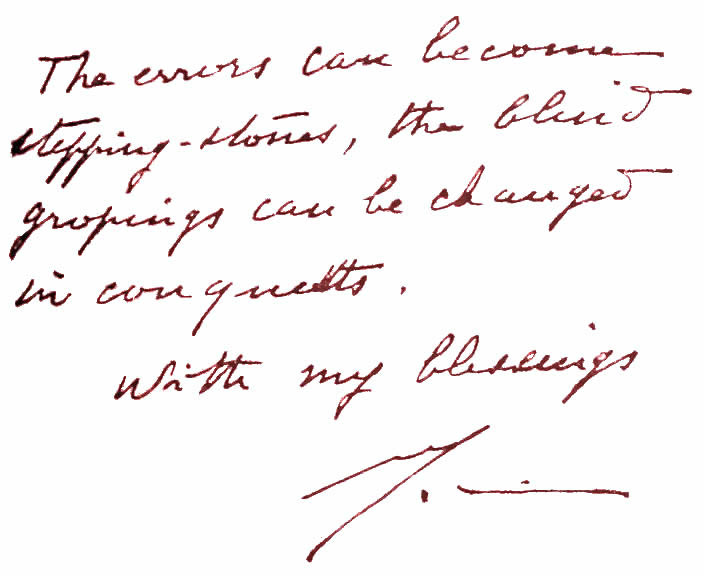 The errors can become
stepping-stones, the blind
gropings can be changed
in conquests.
With my blessings